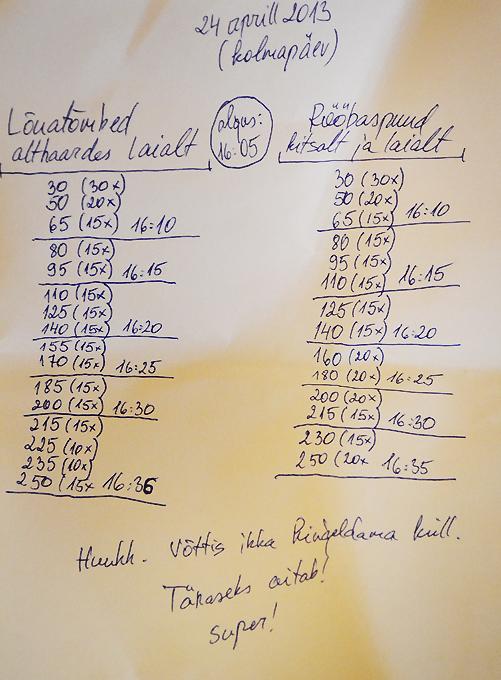 24 aprill 2013
(kolmapäev)
Lõuatõmbed
althaardes laialt
algus:
16:05
30 (30x)
50 (20x)
65 (15x) 16:10
80 (15x)
95 (15x) 16:15
110 (15x)
125 (15x)
140 (15x) 16:20
155 (15x)
170 (15x) 16:25
185 (15x)
200 (15x) 16:30
215 (15x)
225 (10x)
235 (10x)
250 (15x 16:36
Rööbaspuud
kitsalt ja laialt
30 (30x)
50 (20x)
65 (15x) 16:10
80 (15x)
95 (15x)
110 (15x) 16:15
125 (15x)
140 (15x) 16:20
160 (20x)
180 (20x) 16:25
200 (20x)
215 (15x) 16:30
230 (15x)
250 (20x 16:35
Huuhh. Võttis ikka ringeldama küll.
Tänaseks aitab!
Super!